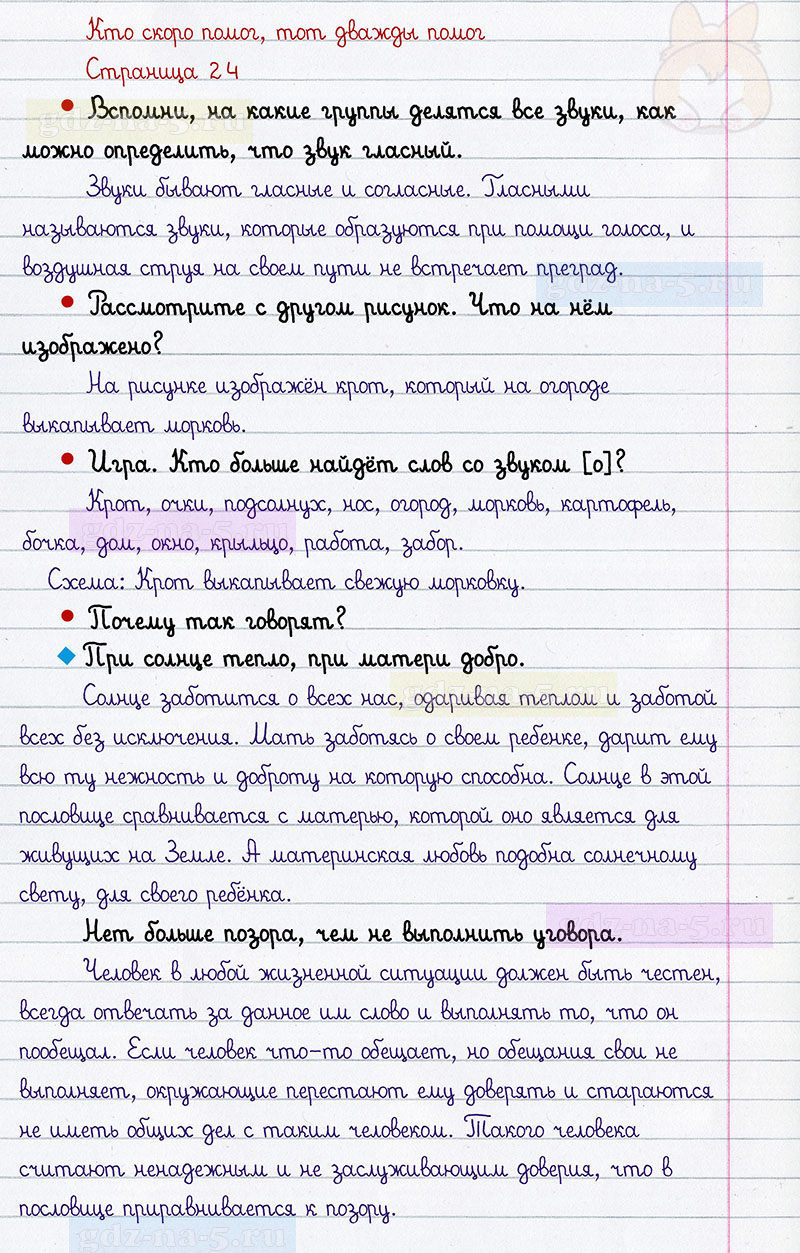 Кто скоро помог, тот дважды помог
Страница 24
• Вспомни, на какие группы делятся все звуки, как
можно определить, что звук гласный.
Звуки бывают гласные и согласные. Гласными
называются звуки, которые образуются при помощи голоса, и
воздушная струя на своем пути не встречает преград.
• Рассмотрите с другом рисунок. Что на нём
изображено?
На рисунке изображён крот, который на огороде
выкапывает морковь.
• Игра. Кто больше найдёт слов со звуком [о]?
Крот, очки, подсолнух, нос, огород, морковь, картофель,
бочка, дом, окно, крыльцо, работа, забор.
Схема: Крот выкапывает свежую морковку.
• Почему так говорят?
При солнце тепло, при матери добро.
Солнце заботится о всех нас, одаривая теплом и заботой
всех без исключения. Мать заботясь о своем ребенке, дарит ему
всю ту нежность и доброту на которую способна. Солнце в этой
пословице сравнивается с матерью, которой оно является для
живущих на Земле. А материнская любовь подобна солнечному
свету, для своего ребёнка.
Нет больше позора, чем не выполнить уговора.
Человек в любой жизненной ситуации должен быть честен,
всегда отвечать за данное им слово и выполнять то, что он
пообещал. Если человек что-то обещает, но обещания свои не
выполняет, окружающие перестают ему доверять и стараются
не иметь общих дел с таким человеком. Такого человека
считают ненадежным и не заслуживающим доверия, что в
пословице приравнивается к позору.
gdz-na-5.ru
gdz-na-5.ru
gdz-na-5.ru
gdz-na-5.ru
gdz-na-5.ru
gdz-na-5.ru